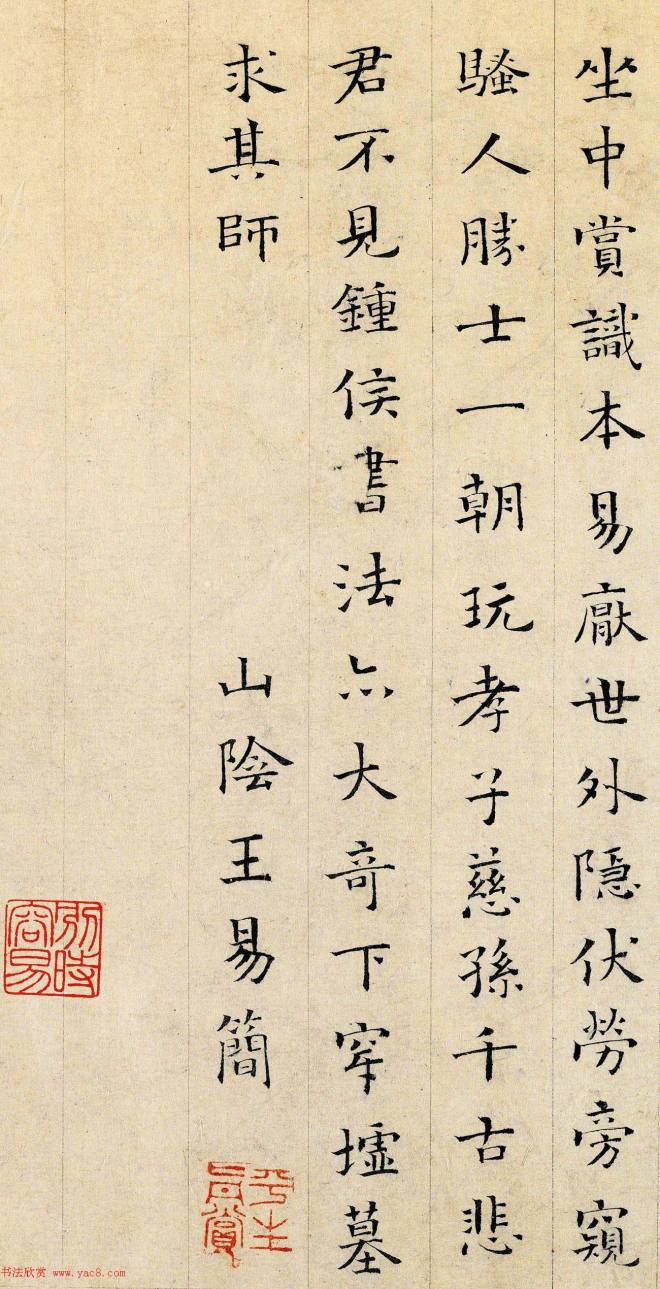 坐中賞識本易厭世外隱伏勞旁窺
騷人勝士一朝玩孝子慈孫千古悲
君不見鍾侯書法亦大奇下穿墟墓
求其師
山陰王易簡
平生真賞
別時容易
书法欣赏 www.yac8.com